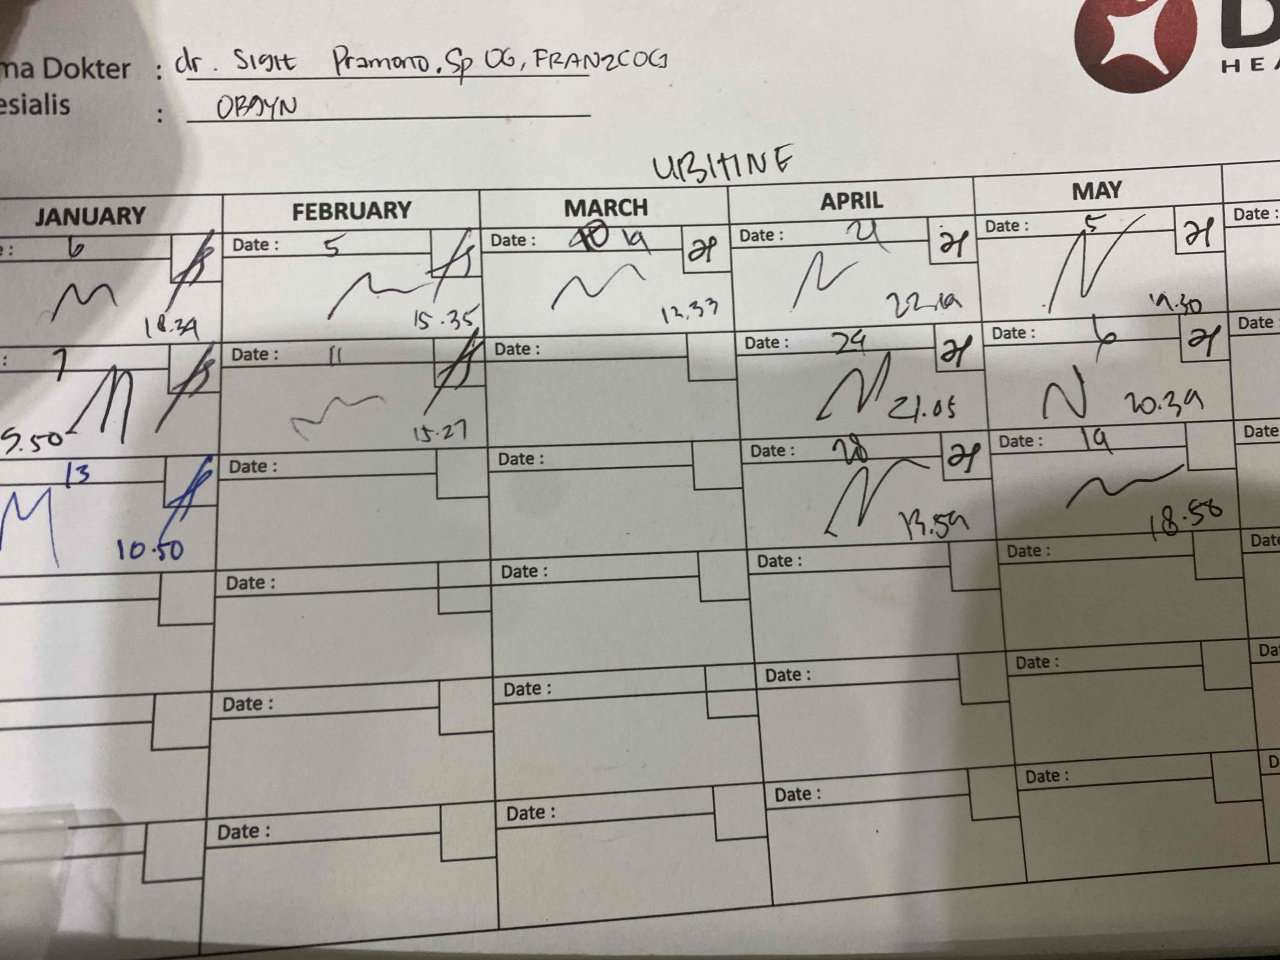 ma Dokter : dr. Sigit Pramono. Sp OG, FRANZCOG
esialis : OBGYN
HEA
UBITINE
JANUARY FEBRUARY MARCH APRIL MAY
: 6 Date : 5 Date : 19 Date : 21 Date : 5 Date :
18.34 15.35 22.19
: 7 Date : 11 Date : Date : Date : 6 Date
5.50 15.27 21.05 20.39
13 Date : Date : Date : 28 Date : 19 Date
10.50 13.59 18.58
Date : Date : Date : Date : Dat
Date : Date : Date : Date : Da
Date : Date : Date : Date : D